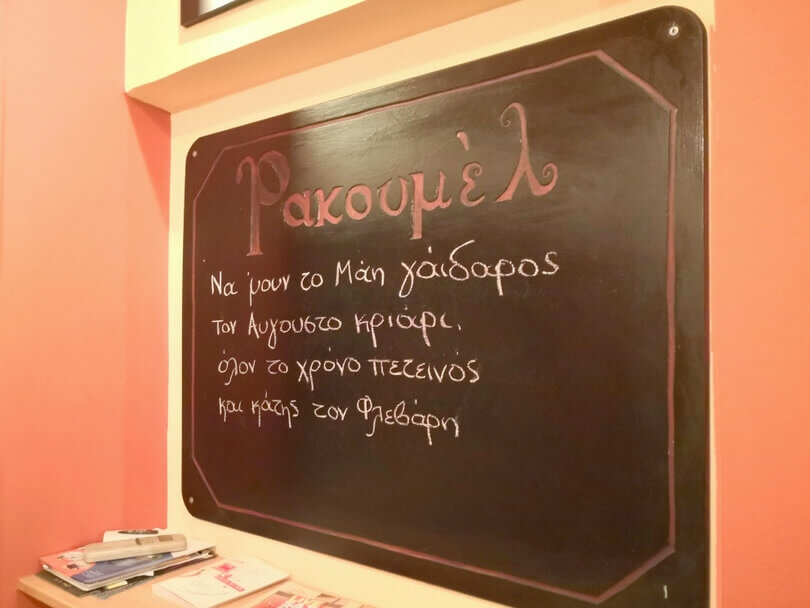 Ρακουμέλ
Να 'μουν το Μάη γάιδαρος
τον Αυγουστο κριάρι.
όλον το χρόνο πετεινός
και κάτης τον Φλεβάρη